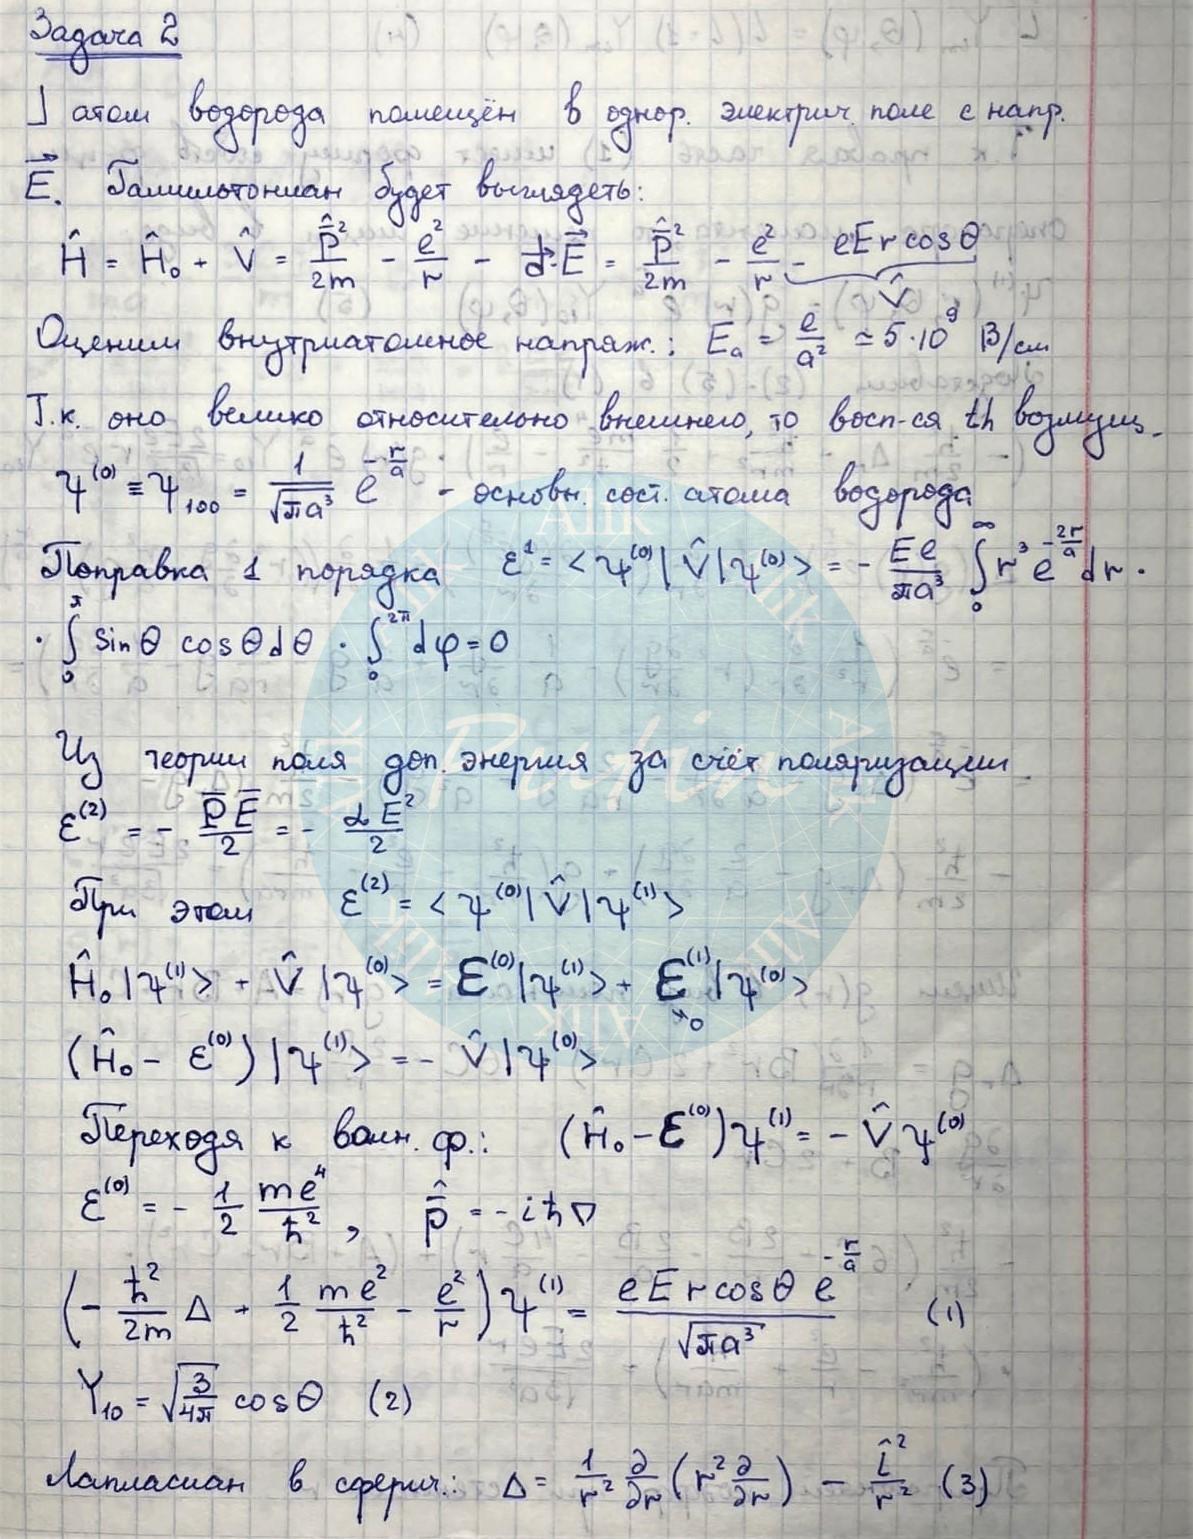 Задача 2
] атом водорода помещён в однор. электрич. поле с напр.
E⃗. Гамильтониан будет выглядеть:
Ĥ = Ĥ₀ + V̂ = p̂²/2m - e²/r - d⃗·E⃗ = p̂²/2m - e²/r - eEr cosθ
V̂
Оценим внутриатомное напряж.: Eₐ = e/a² ≃ 5·10⁹ В/см
Т.к. оно велико относительно внешнего, то восп-ся th возмущ.
ψ⁽⁰⁾ ≡ ψ₁₀₀ = 1/√(πa³) e^(-r/a) - основн. сост. атома водорода
Поправка 1 порядка ε¹ = <ψ⁽⁰⁾|V̂|ψ⁽⁰⁾> = - Ee/πa³ ∫₀^∞ r³ e^(-2r/a) dr ·
· ∫₀^π sinθ cosθ dθ · ∫₀^2π dφ = 0
Из теории поля доп. энергия за счёт поляризации
ε⁽²⁾ = - P⃗E⃗/2 = - αE²/2
При этом ε⁽²⁾ = <ψ⁽⁰⁾|V̂|ψ⁽¹⁾>
Ĥ₀|ψ⁽¹⁾> + V̂|ψ⁽⁰⁾> = ε⁽⁰⁾|ψ⁽¹⁾> + ε⁽¹⁾|ψ⁽⁰⁾>
↘0
(Ĥ₀ - ε⁽⁰⁾)|ψ⁽¹⁾> = - V̂|ψ⁽⁰⁾>
Переходя к волн. ф.: (Ĥ₀ - ε⁽⁰⁾)ψ⁽¹⁾ = - V̂ψ⁽⁰⁾
ε⁽⁰⁾ = - 1/2 me⁴/ħ² , p̂ = -iħ∇
(- ħ²/2m Δ + 1/2 me²/ħ² - e²/r) ψ⁽¹⁾ = eEr cosθ e^(-r/a)/√(πa³) (1)
Y₁₀ = √(3/4π) cosθ (2)
Лапласиан в сферич.: Δ = 1/r² ∂/∂r (r² ∂/∂r) - l̂²/r² (3)
Alik Putin
Alik
Alik
Alik
Alik
Alik
Alik
Alik